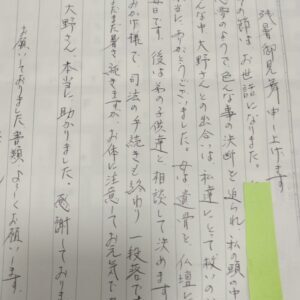 残暑御見舞申し上げます
の節は お世話になりました。
夢のようで色んな事の決断を迫られ 私の頭の中
んな中 大野さんとの出合いは 私達にとって救いの
当に ありがとうございました。母は遺骨を仏壇に
毎日です。後は 私の子供達と相談して決めます
お陰様で 司法の手続きも終わり 一段落です
まだまだ暑さ続きますが、お体に注意してお元気で
大野さん 本当に助かりました。感謝しておりま
お願いしておりました書類 よろしくお願いします